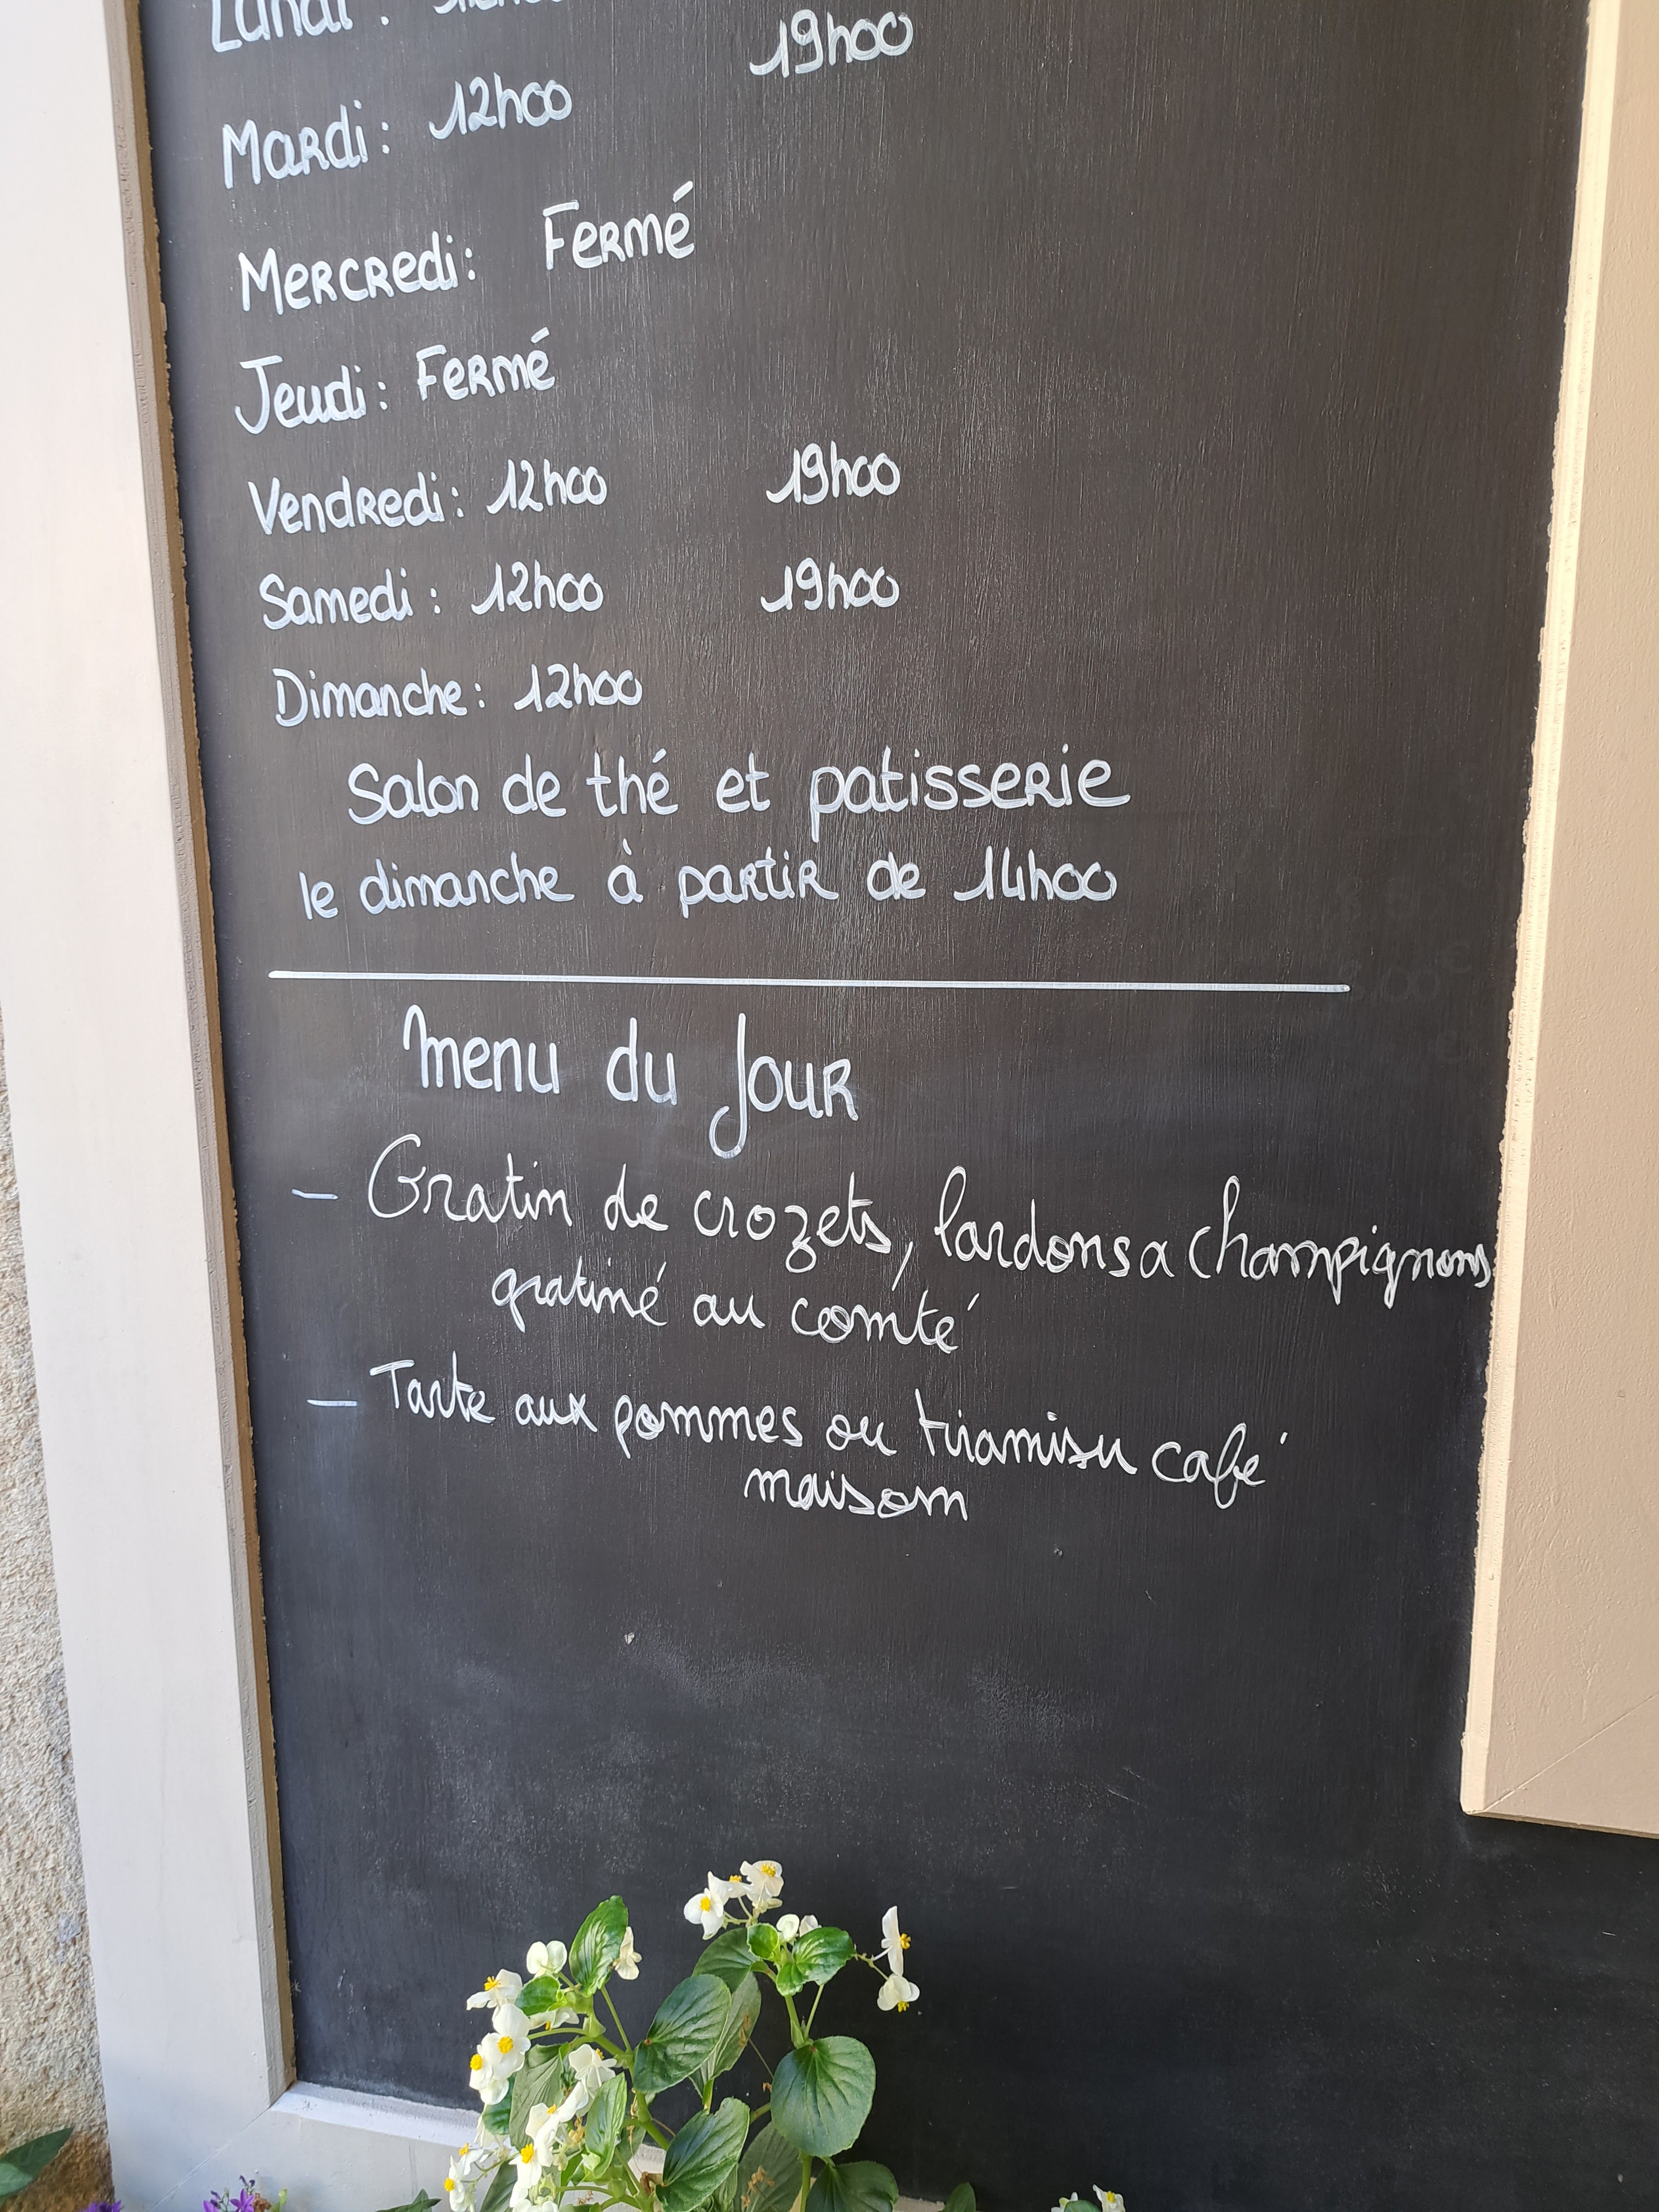 Lundi :
19h00
Mardi : 12h00
Mercredi : Fermé
Jeudi : Fermé
Vendredi : 12h00 19h00
Samedi : 12h00 19h00
Dimanche : 12h00
Salon de thé et patisserie
le dimanche à partir de 14h00
Menu du Jour
- Gratin de crozets, lardons a champignons
gratiné au comté
- Tarte aux pommes ou tiramisu café
maison